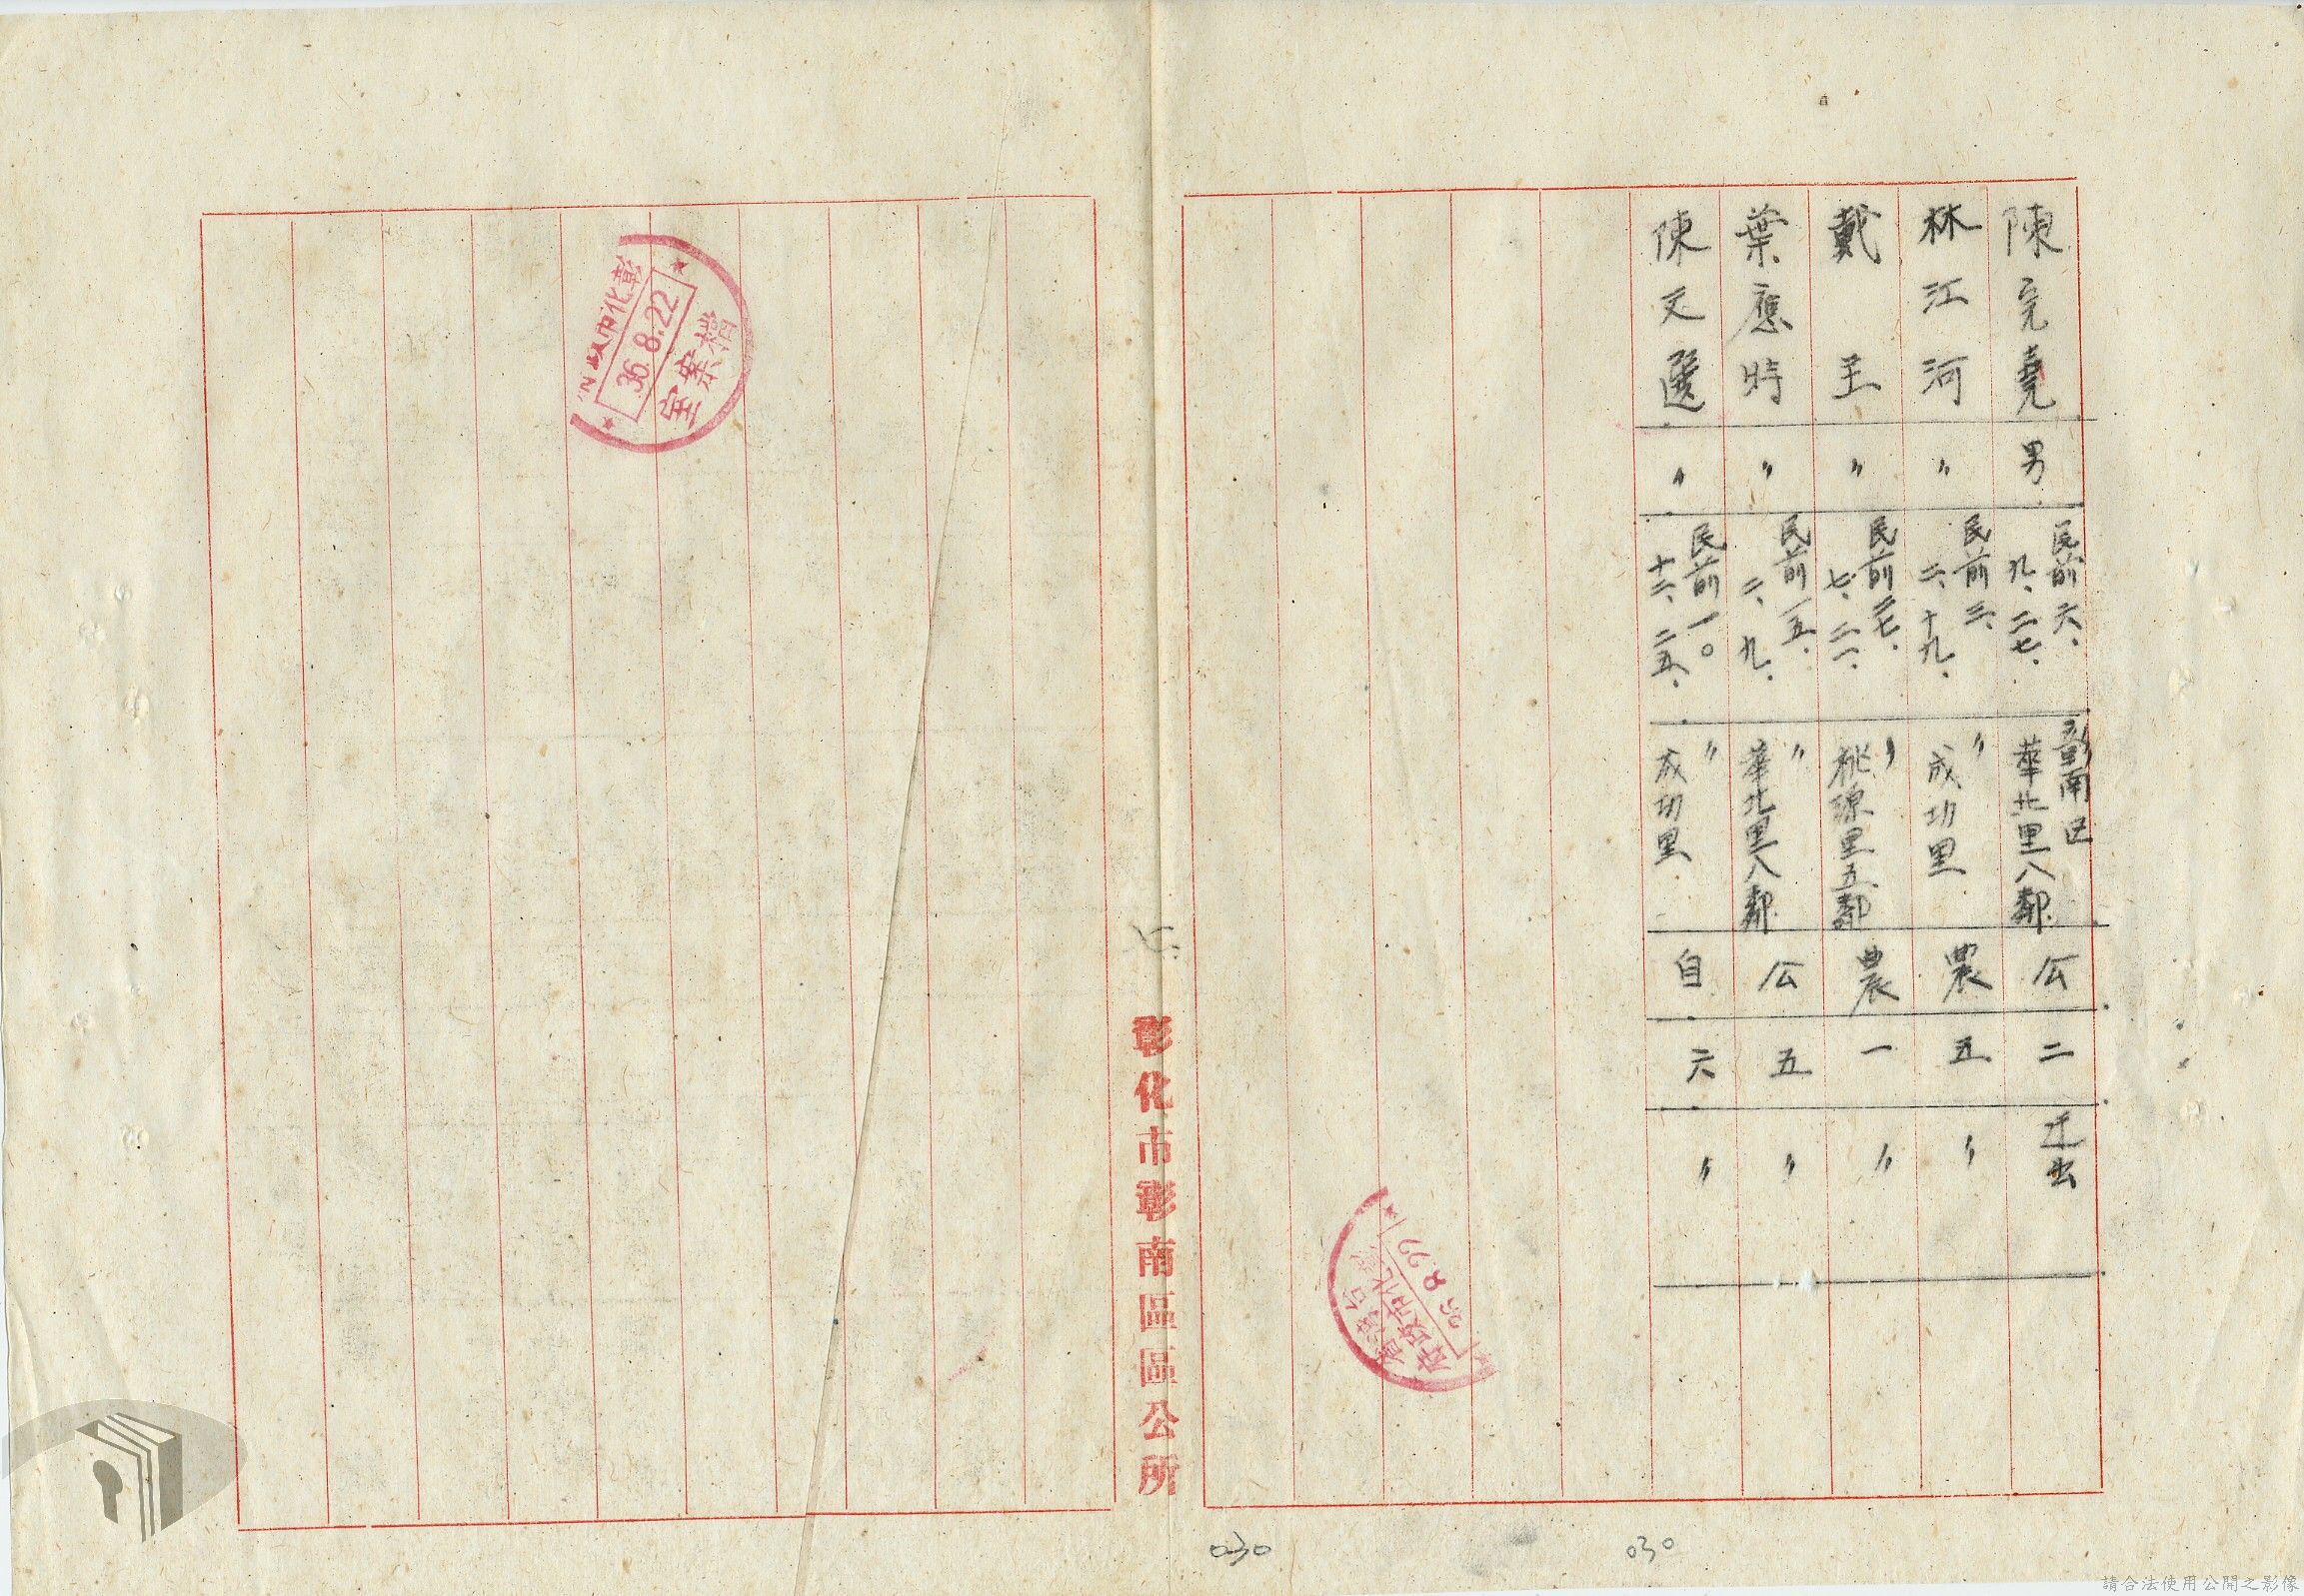 陳完堯 男 民前六、九、二七、 彰南区華北里八鄰 公 二
林江河 〃 民前三、二、十九、 〃成功里 農 五 〃
戴王 〃 民前三七、七、二一、 〃桃源里五鄰 農 一 〃
葉應時 〃 民前一五、二、九、 〃華北里八鄰 公 五 〃
陳文選 〃 民前一〇十二、二五、 〃成功里 自 六 〃
府政市化彰
36.8.22
彰化市彰南區區公所
彰化市政
36.8.22
檔案室
030
030
請合法使用公開之影像